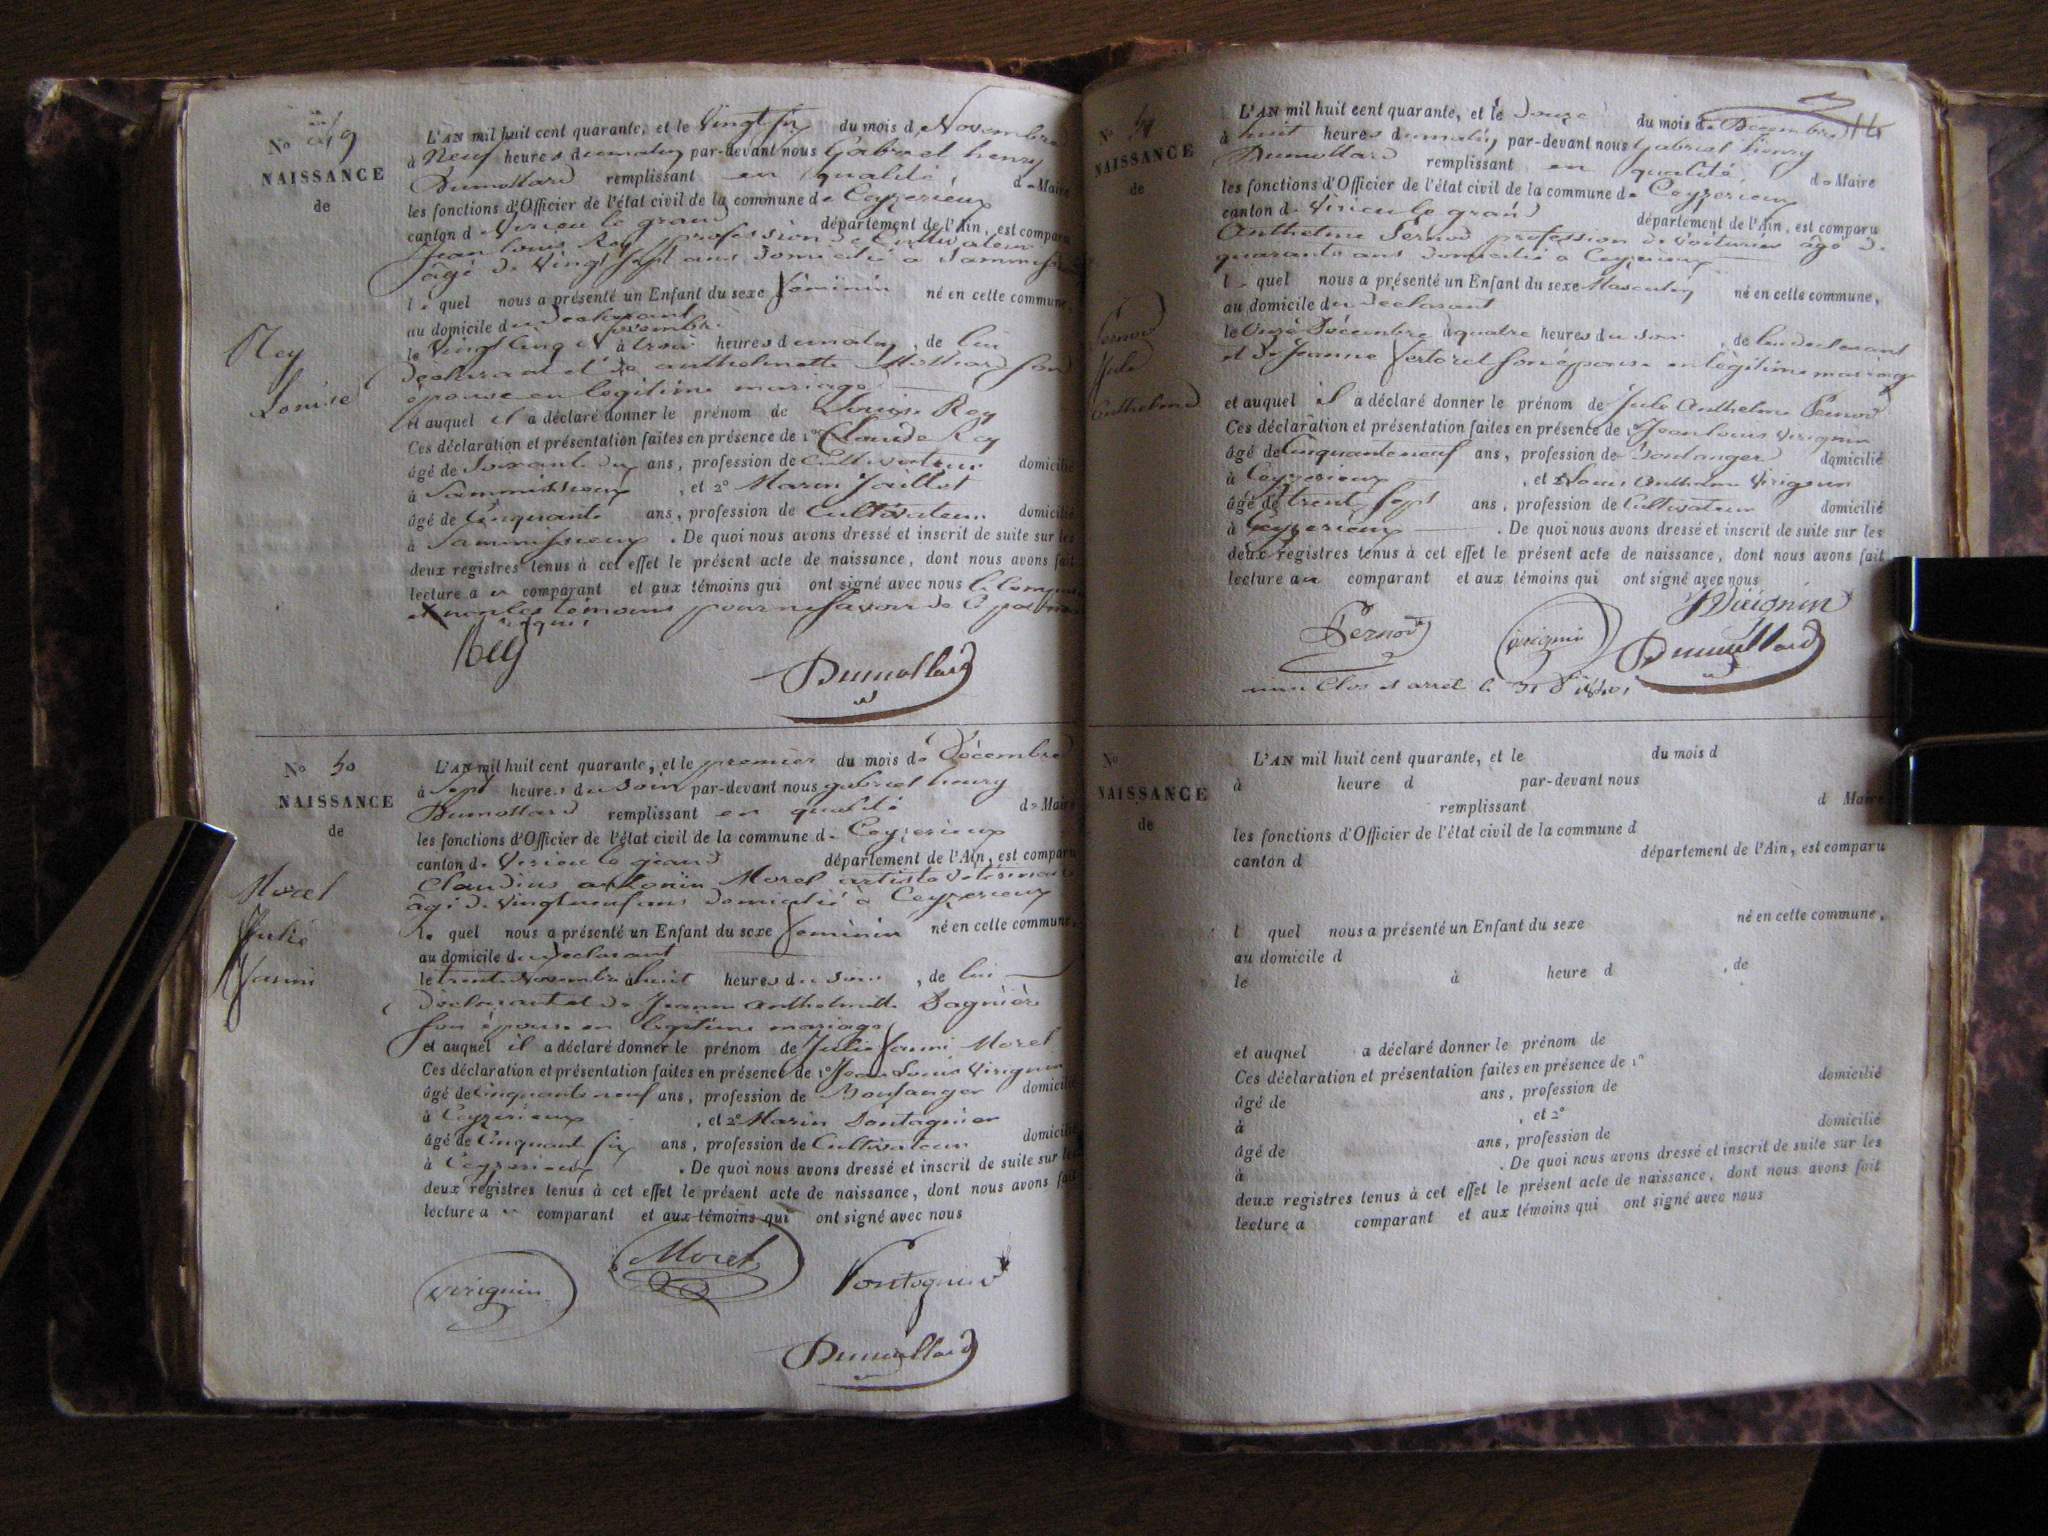 No 49
NAISSANCE
de
Rey
Louise
L'AN mil huit cent quarante, et le vingt six du mois de Novembre
à neuf heures du matin par-devant nous Gabriel henry
Dumollard remplissant en qualité de Maire
les fonctions d'Officier de l'état civil de la commune de Ceyzerieux
canton de Virieu le grand département de l'Ain, est comparu
Jean Louis Rey profession de Cultivateur
âgé de vingt sept ans domicilié à
le quel nous a présenté un Enfant du sexe féminin né en cette commune,
au domicile du declarant
novembre
le vingt cinq à trois heures du matin, de lui
declarant et de anthelmette son
epouse en legitime mariage
et auquel il a déclaré donner le prénom de Louise Rey
Ces déclaration et présentation faites en présence de 1° Claude Rey
âgé de ans, profession de Cultivateur domicilié
à , et 2° Marin
âgé de Cinquante ans, profession de Cultivateur domicilié
à . De quoi nous avons dressé et inscrit de suite sur les
deux registres tenus à cet effet le présent acte de naissance, dont nous avons fait
lecture au comparant et aux témoins qui ont signé avec nous le
non les témoins pour ne savoir de ce
requis
Rey
Dumollard
No 50
NAISSANCE
de
Morel
Julie
fanni
L'AN mil huit cent quarante, et le premier du mois de Décembre
à sept heures du soir par-devant nous gabriel henry
Dumollard remplissant en qualité de Maire
les fonctions d'Officier de l'état civil de la commune de Ceyzerieux
canton de Virieu le grand département de l'Ain, est comparu
Claudius antonin Morel artiste vétérinaire
âgé de vingt neuf ans domicilié à Ceyzerieux
le quel nous a présenté un Enfant du sexe féminin né en cette commune,
au domicile du declarant
le trente Novembre à huit heures du soir, de lui
declarant et de Jeanne anthelmette
son épouse en legitime mariage
et auquel il a déclaré donner le prénom de Julie fanni Morel
Ces déclaration et présentation faites en présence de 1° Jean Louis Virignin
âgé de Cinquante neuf ans, profession de Boulanger domicilié
à Ceyzerieux, et 2° Marin Pontagnier
âgé de Cinquante six ans, profession de Cultivateur domicilié
à Ceyzerieux. De quoi nous avons dressé et inscrit de suite sur les
deux registres tenus à cet effet le présent acte de naissance, dont nous avons fait
lecture au comparant et aux témoins qui ont signé avec nous
Morel
virignin
Dumollard
14
No 51
NAISSANCE
de
Pernod
Jule
Anthelme
L'AN mil huit cent quarante, et le Douze du mois de Décembre
à huit heures du matin par-devant nous Gabriel henry
Dumollard remplissant en qualité de Maire
les fonctions d'Officier de l'état civil de la commune de Ceyzerieux
canton de Virieu le grand département de l'Ain, est comparu
Anthelme Pernod profession de Voiturier âgé de
quarante ans domicilié à Ceyzerieux
le quel nous a présenté un Enfant du sexe Masculin né en cette commune,
au domicile du declarant
le Onze Décembre à quatre heures du soir, de lui declarant
et de Jeanne son épouse en légitime mariage
et auquel il a déclaré donner le prénom de Jule Anthelme Pernod
Ces déclaration et présentation faites en présence de 1° Jean Louis Virignin
âgé de Cinquante neuf ans, profession de Boulanger domicilié
à Ceyzerieux, et 2° Louis Anthelme Virignin
âgé de trente sept ans, profession de Cultivateur domicilié
à Ceyzerieux. De quoi nous avons dressé et inscrit de suite sur les
deux registres tenus à cet effet le présent acte de naissance, dont nous avons fait
lecture au comparant et aux témoins qui ont signé avec nous
Virignin
Pernod virignin Dumollard
Clos et arreté le 31 1840
No
NAISSANCE
de
L'AN mil huit cent quarante, et le du mois d
à heure d par-devant nous
remplissant d Maire
les fonctions d'Officier de l'état civil de la commune d
canton d département de l'Ain, est comparu
l quel nous a présenté un Enfant du sexe né en cette commune,
au domicile d
le à heure d , de
et auquel a déclaré donner le prénom de
Ces déclaration et présentation faites en présence de 1°
âgé de ans, profession de domicilié
à , et 2°
âgé de ans, profession de domicilié
à . De quoi nous avons dressé et inscrit de suite sur les
deux registres tenus à cet effet le présent acte de naissance, dont nous avons fait
lecture a comparant et aux témoins qui ont signé avec nous